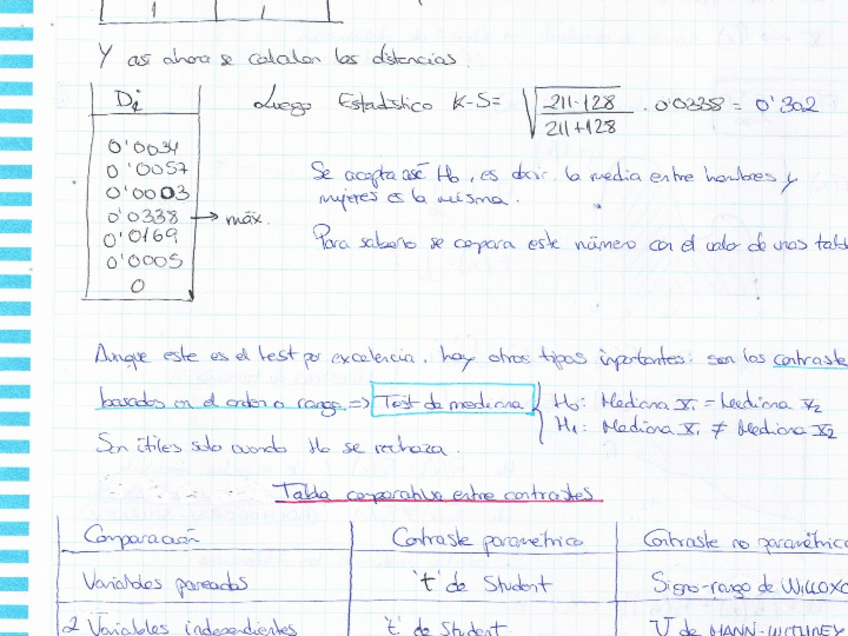 1 1
Y así ahora se calculan las distancias.
Di
Luego Estadístico K-S = √(211·128 / 211+128) · 0'0338 = 0'302
0'0034
0'0057
0'0003
0'0338 → máx.
0'0169
0'0005
0
Se acepta así H₀, es decir, la media entre hombres y
mujeres es la misma.
Para saberlo se compara este número con el valor de unas tabl
Aunque este es el test por excelencia, hay otros tipos importantes: son los contraste
basados en el orden o rango => Test de mediana { H₀: Mediana X₁ = Mediana X₂
H₁: Mediana X₁ ≠ Mediana X₂
Son útiles solo cuando H₀ se rechaza.
Tabla comparativa entre contrastes
Comparación Contraste paramétrico Contraste no paramétrico
Variables pareadas 't' de Student Signo-rango de WILCOXO
2 Variables independientes 't' de Student U de MANN-WITHNEY